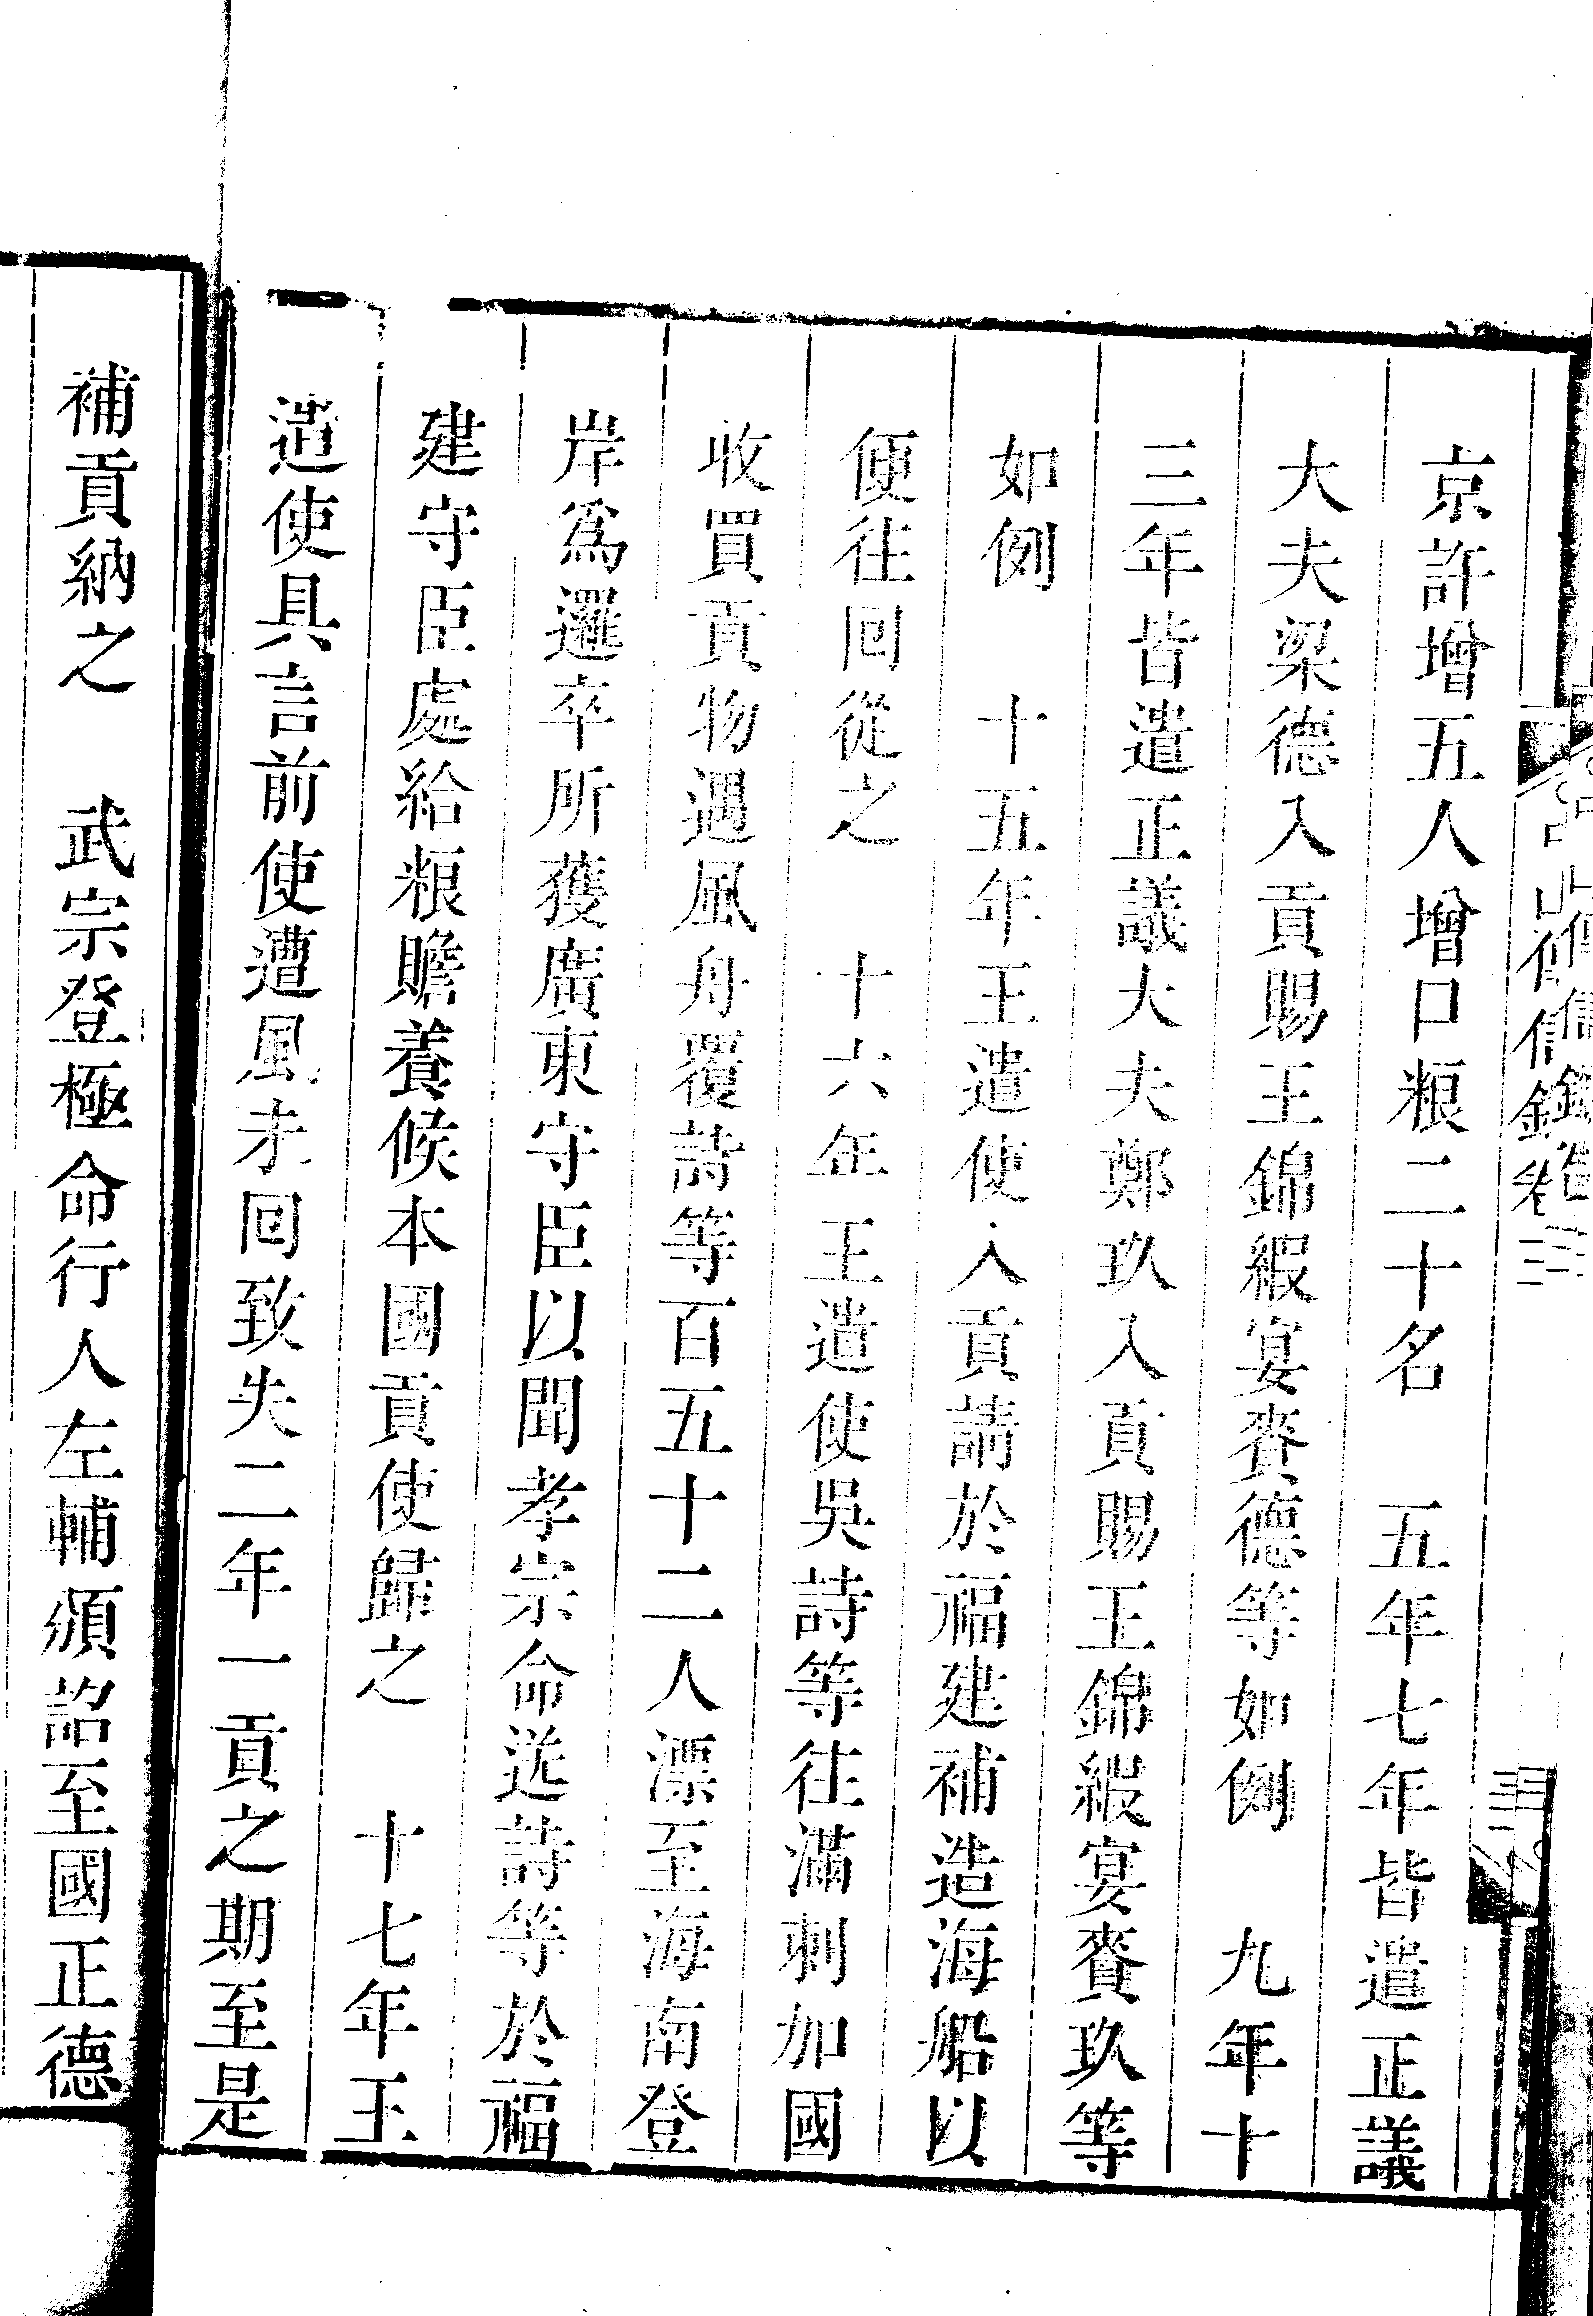 京許增五人增口粮二十名　五年七年皆遣正議
大夫梁德入貢賜王錦緞宴賚德等如例　九年十
三年皆遣正議大夫鄭玖入貢賜王錦緞宴賚玖等
如例　十五年王遣使入貢請於福建補造海船以
便往回從之　十六年王遣使吳詩等往滿剌加國
收買貢物遇風舟覆詩等百五十二人漂至海南登
岸爲邏卒所獲廣東守臣以聞孝宗命送詩等於福
建守臣處給粮贍養候本國貢使歸之　十七年王
遣使具言前使遭風未回致失二年一貢之期至是
補貢納之　武宗登極命行人左輔頒詔至國正德